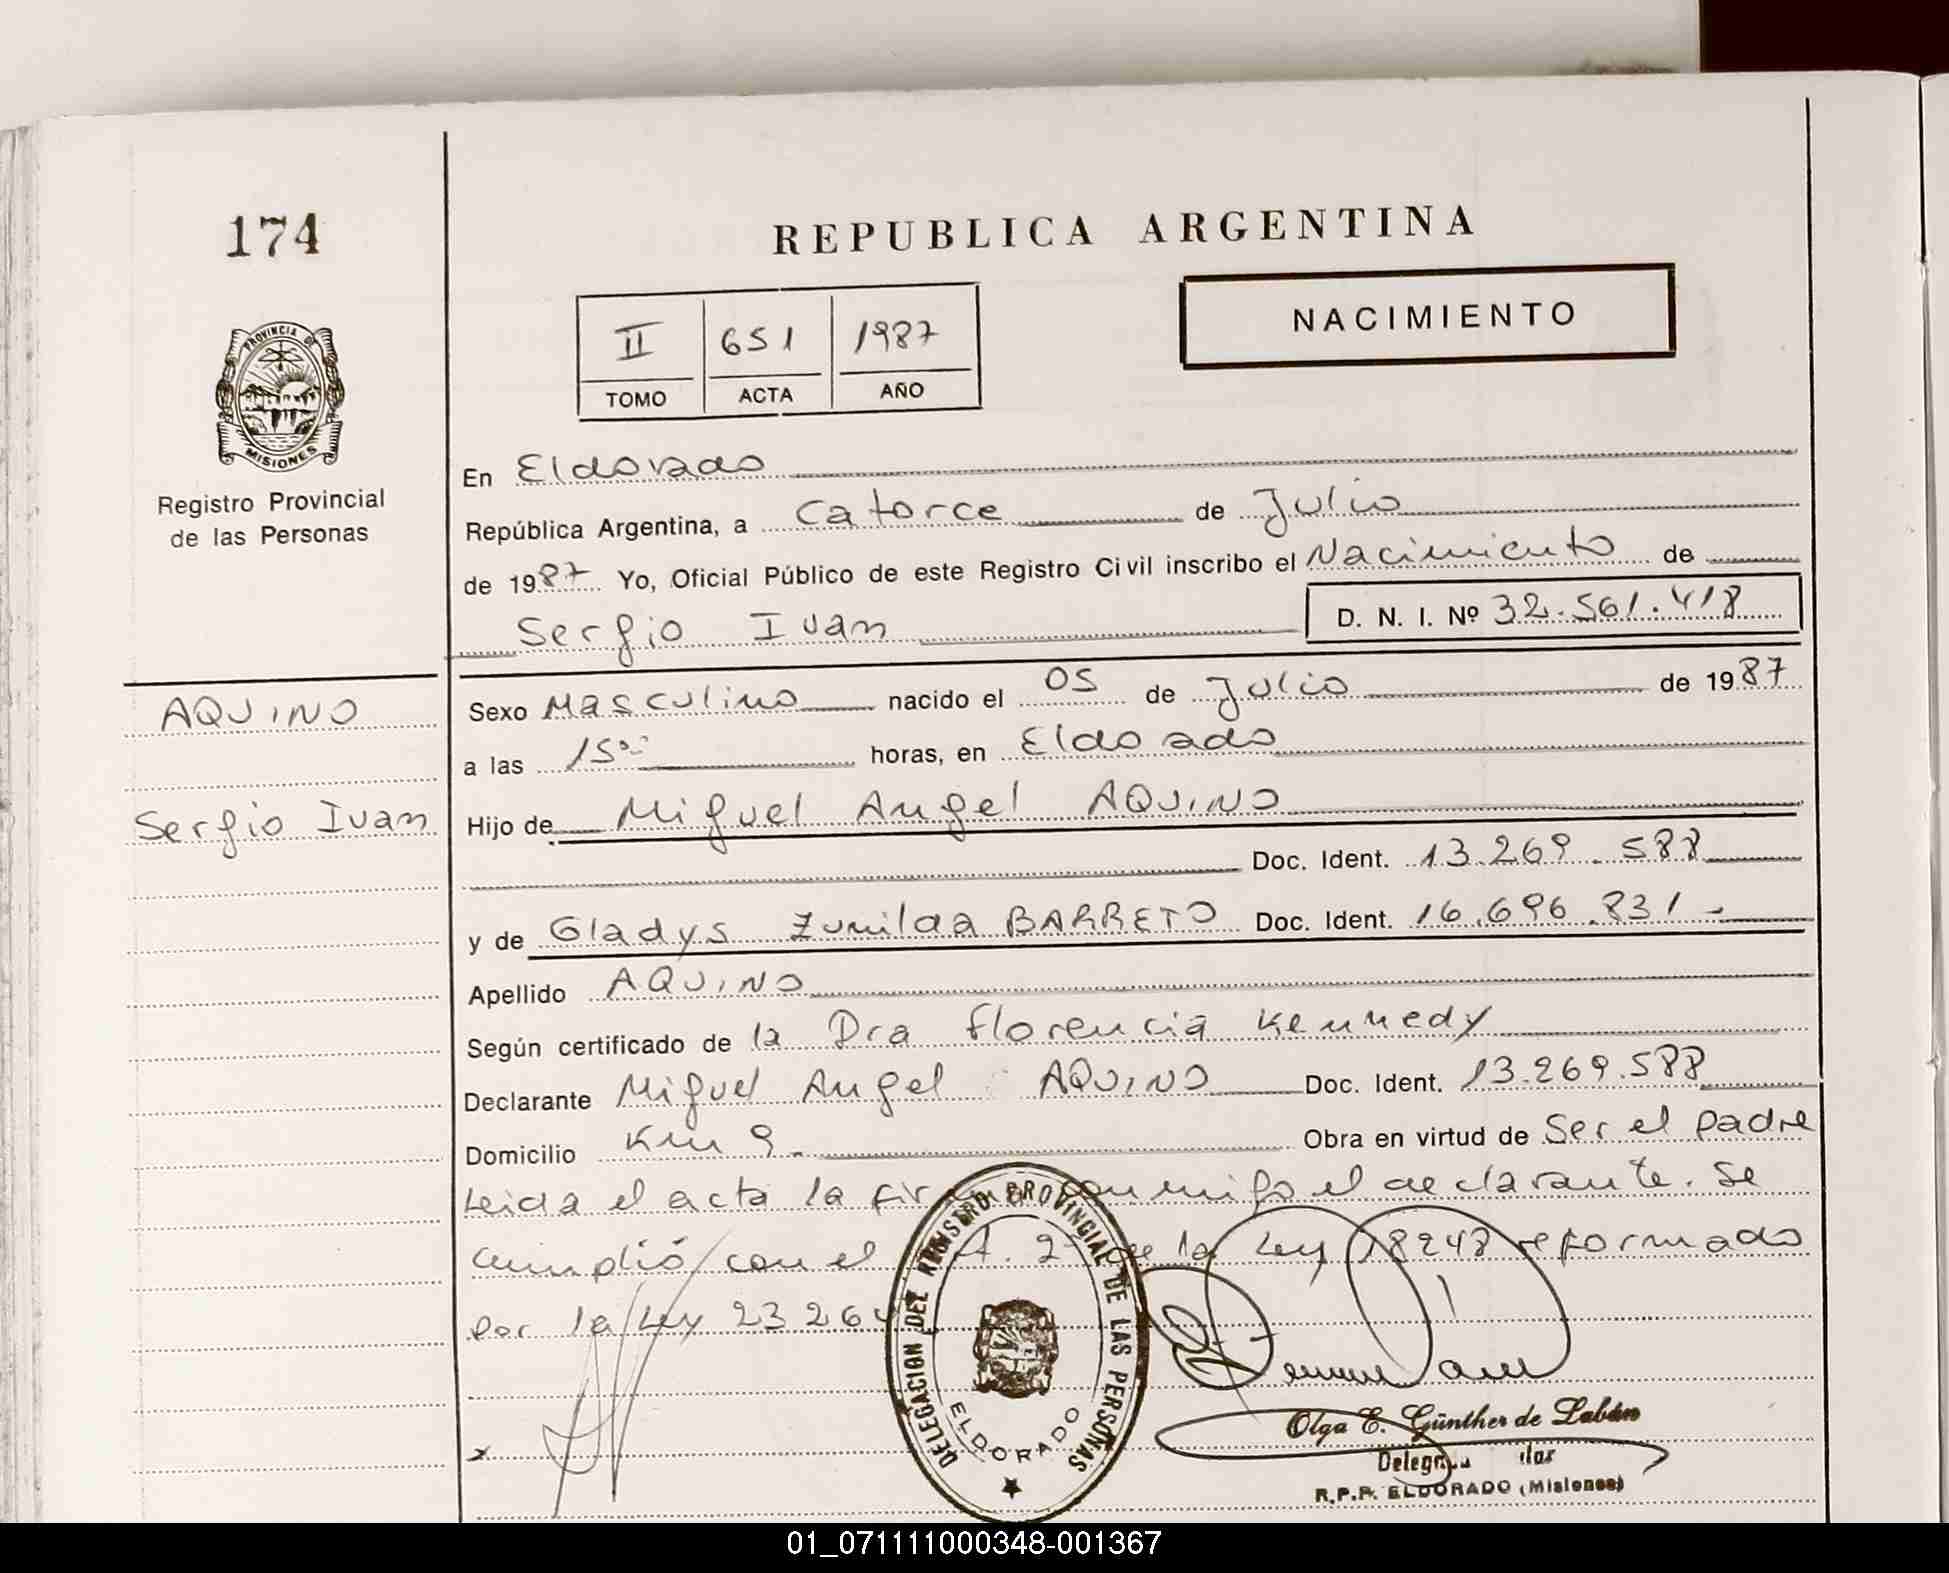 174
REPUBLICA ARGENTINA
NACIMIENTO
II 651 1987
TOMO ACTA AÑO
PROVINCIA DE
MISIONES
Registro Provincial
de las Personas
En Eldorado
República Argentina, a Catorce de Julio
de 1987 Yo, Oficial Público de este Registro Civil inscribo el Nacimiento de
Sergio Ivan D. N. I. Nº 32.561.418
AQUINO
Sergio Ivan
Sexo Masculino nacido el 05 de Julio de 1987
a las 15 horas, en Eldorado
Hijo de Miguel Angel AQUINO
Doc. Ident. 13.269.588
y de Gladys Zunilda BARRETO Doc. Ident. 16.696.831.-
Apellido AQUINO
Según certificado de la Dra Florencia Kennedy
Declarante Miguel Angel AQUINO Doc. Ident. 13.269.588
Domicilio Km 9. Obra en virtud de Ser el padre
Leida el acta la conmigo el declarante. Se
cumplió con el A. 2 de la Ley 18248 reformado
por la Ley 23264
DELEGACION DEL REGISTRO PROVINCIAL DE LAS PERSONAS
ELDORADO
x
Olga E. Günther de Labán
R.P.P. ELDORADO (Misiones)
01_071111000348-001367